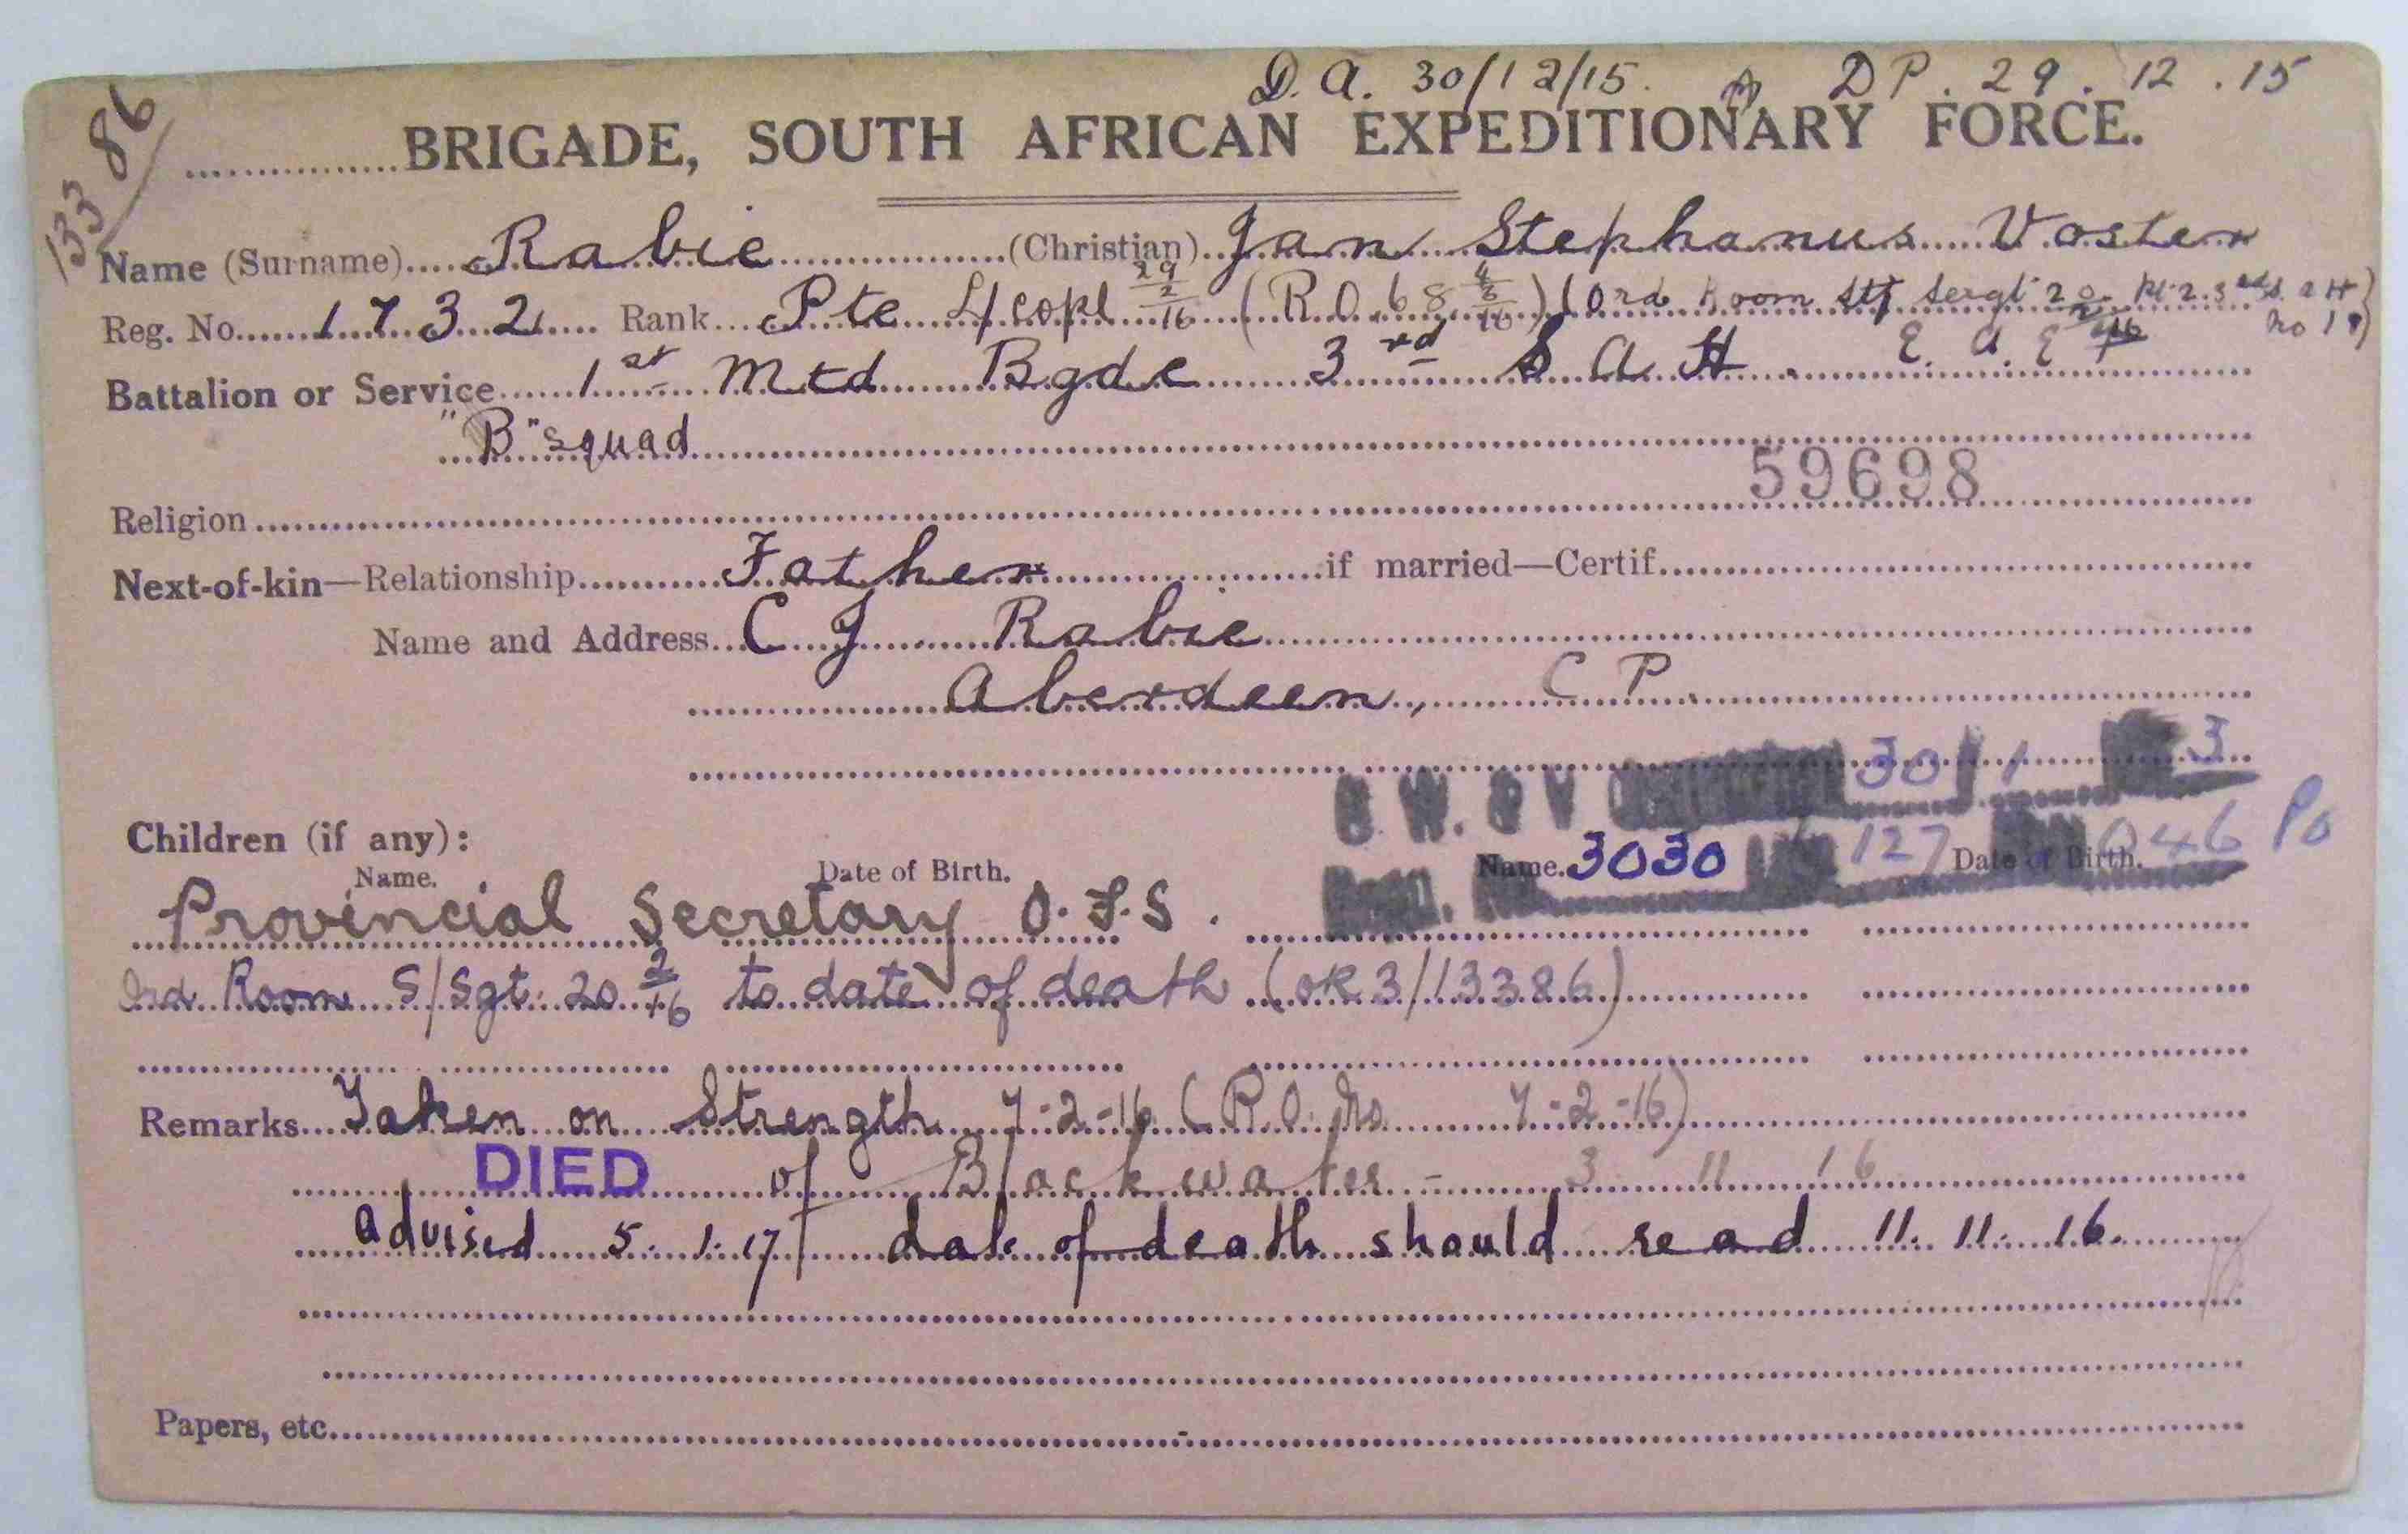 D. A. 30/12/15. DP. 29. 12. 15
133 86
BRIGADE, SOUTH AFRICAN EXPEDITIONARY FORCE.
Name (Surname) Rabie (Christian) Jan Stephanus Voster
Reg. No. 1732 Rank Pte L/Copl 29/2/16 (R.O. 68 4/3/16) (Ord Room Stf Sergt 20
No 18)
Battalion or Service 1st Mtd Bgde 3rd S A H. E. A. E
"B" squad
59698
Religion
Next-of-kin—Relationship Father if married—Certif.
Name and Address C J Rabie
Aberdeen, C P.
30 1 3
Children (if any): 3030 127 046 Po
Name. Date of Birth. Name. Date of Birth.
Provincial Secretary O.F.S.
Ord Room S/Sgt. 20 2/16 to date of death (OR 3/13386)
Remarks Taken on Strength 7-2-16 (R.O. No 7-2-16)
DIED of Blackwater - 3 11 16
advised 5.1.17 date of death should read 11. 11. 16.
Papers, etc.